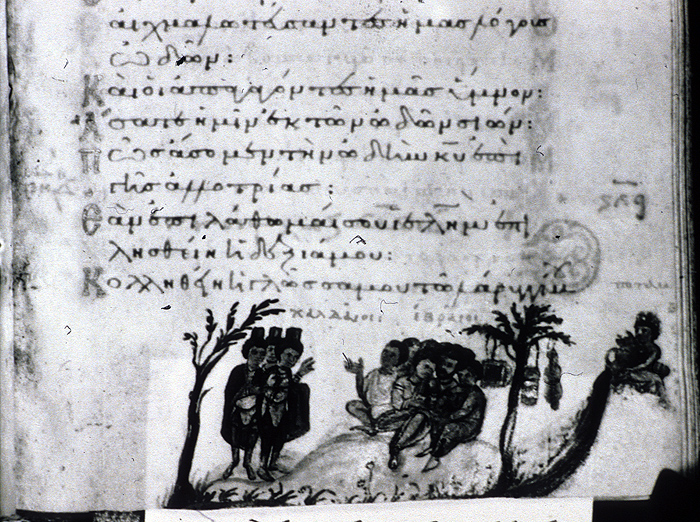 αιχμαλωτεύσαντες ἡμᾶς λόγους
ᾠδῶν:
Καὶ οἱ ἀπαγαγόντες ἡμᾶς ὕμνον:
ᾄσατε ἡμῖν ἐκ τῶν ᾠδῶν σιών:
Πῶς ᾄσομεν τὴν ᾠδὴν κυ ἐπὶ
γῆς ἀλλοτρίας:
Ἐὰν ἐπιλάθωμαί σου ιελημ ἐπι
λησθείη ἡ δεξιά μου:
Κολληθείη ἡ γλῶσσά μου τῷ λάρυγγί
χαλδαιοι εβραιοι